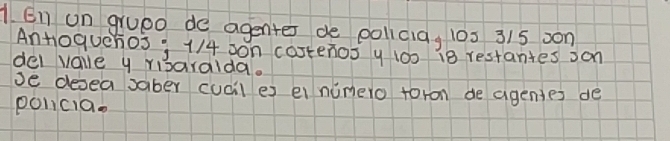 1. En un grupo de agentes de policia, los 3/5 son
Antioqueños; 1/4 son costeños y los 18 restantes son
del valle y risaralda.
se desea saber cuál es el número toron de agentes de
policia.